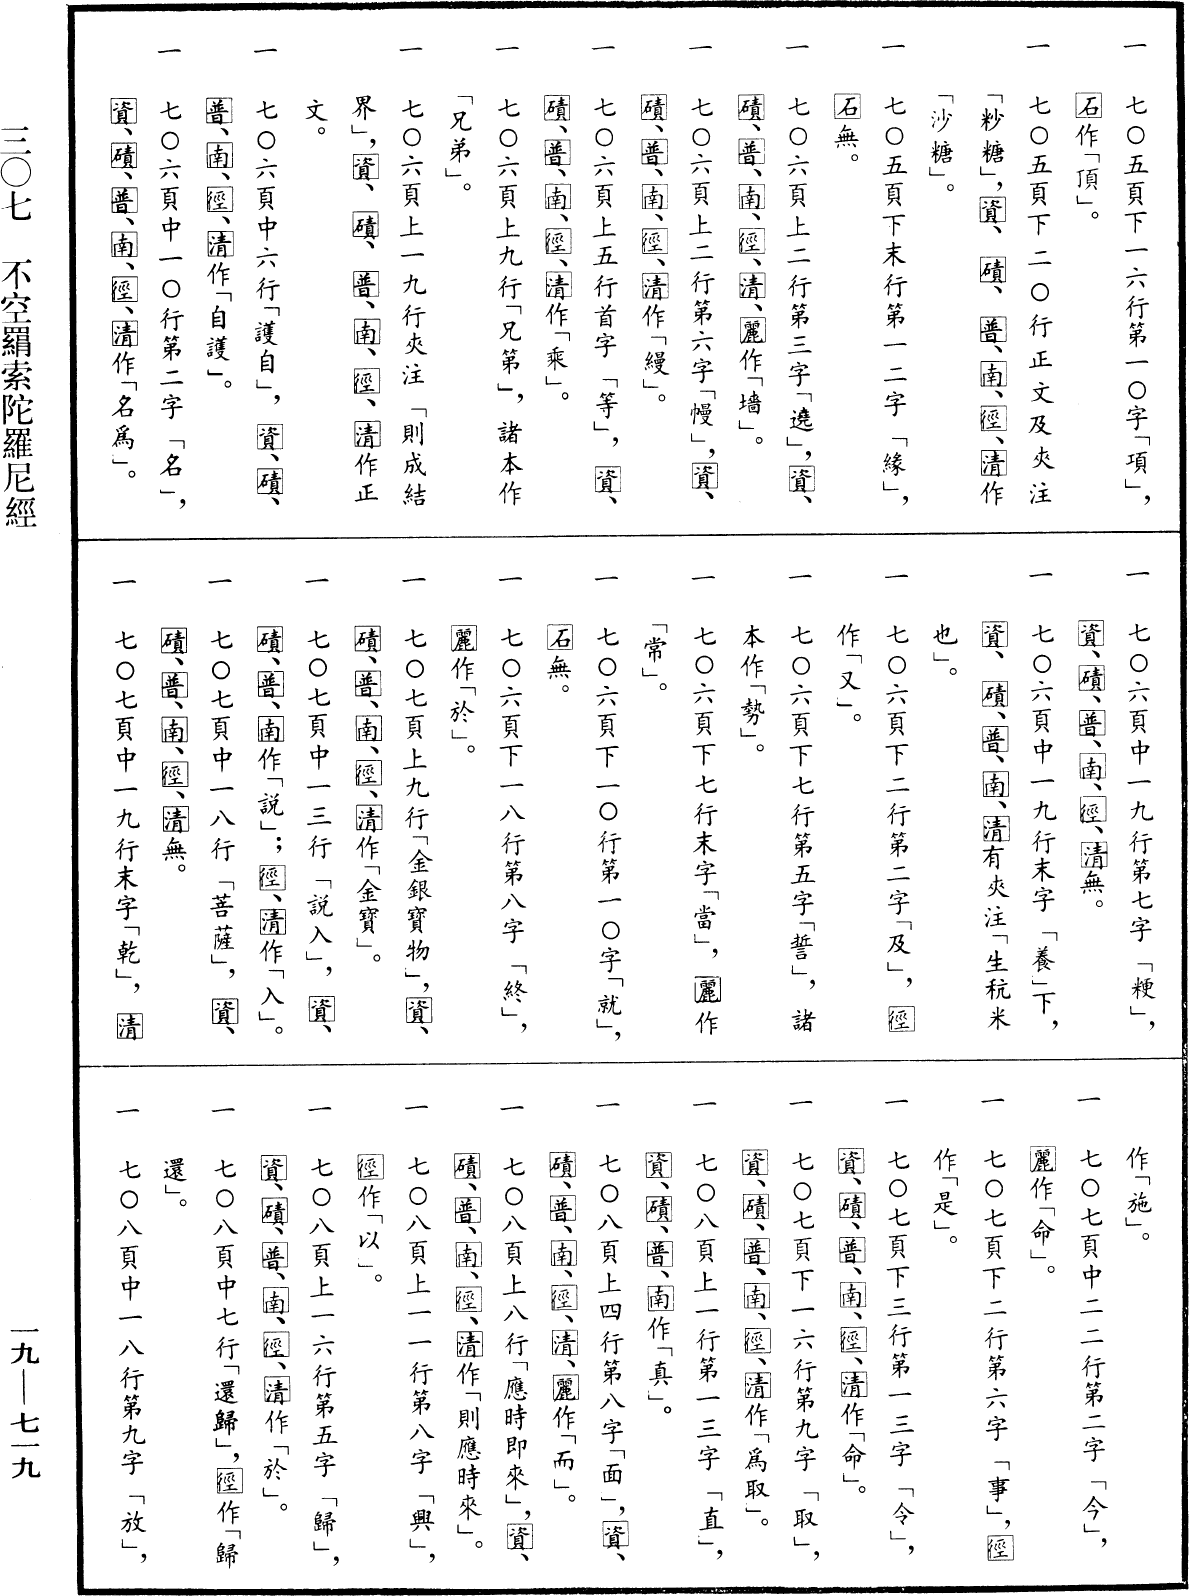 一　七〇五頁下一六行第一〇字「項」，
石作「頂」。
一　七〇五頁下二〇行正文及夾注
「粆糖」，資、磧、普、南、徑、清作
「沙糖」。
一　七〇五頁下末行第一二字「緣」，
石無。
一　七〇六頁上二行第三字「遶」，資、
磧、普、南、徑、清、麗作「墻」。
一　七〇六頁上二行第六字「慢」，資、
磧、普、南、徑、清作「縵」。
一　七〇六頁上五行首字「等」，資、
磧、普、南、徑、清作「乘」。
一　七〇六頁上九行「兄第」，諸本作
「兄弟」。
一　七〇六頁上一九行夾注「則成結
界」，資、磧、普、南、徑、清作正
文。
一　七〇六頁中六行「護自」，資、磧、
普、南、徑、清作「自護」。
一　七〇六頁中一〇行第二字「名」，
資、磧、普、南、徑、清作「名爲」。
一　七〇六頁中一九行第七字「粳」，
資、磧、普、南、徑、清無。
一　七〇六頁中一九行末字「養」下，
資、磧、普、南、清有夾注「生秔米
也」。
一　七〇六頁下二行第二字「及」，徑
作「又」。
一　七〇六頁下七行第五字「誓」，諸
本作「勢」。
一　七〇六頁下七行末字「當」，麗作
「常」。
一　七〇六頁下一〇行第一〇字「就」，
石無。
一　七〇六頁下一八行第八字「終」，
麗作「於」。
一　七〇七頁上九行「金銀寶物」，資、
磧、普、南、徑、清作「金寶」。
一　七〇七頁中一三行「説入」，資、
磧、普、南作「説」；徑、清作「入」。
一　七〇七頁中一八行「菩薩」，資、
磧、普、南、徑、清無。
一　七〇七頁中一九行末字「乾」，清
作「施」。
一　七〇七頁中二二行第二字「今」，
麗作「命」。
一　七〇七頁下二行第六字「事」，徑
作「是」。
一　七〇七頁下三行第一三字「令」，
資、磧、普、南、徑、清作「命」。
一　七〇七頁下一六行第九字「取」，
資、磧、普、南、徑、清作「爲取」。
一　七〇八頁上一行第一三字「直」，
資、磧、普、南作「真」。
一　七〇八頁上四行第八字「面」，資、
磧、普、南、徑、清、麗作「而」。
一　七〇八頁上八行「應時即來」，資、
磧、普、南、徑、清作「則應時來」。
一　七〇八頁上一一行第八字「興」，
徑作「以」。
一　七〇八頁上一六行第五字「歸」，
資、磧、普、南、徑、清作「於」。
一　七〇八頁中七行「還歸」，徑作「歸
還」。
一　七〇八頁中一八行第九字「放」，
三〇七　不空羂索陀羅尼經
一九—七一九